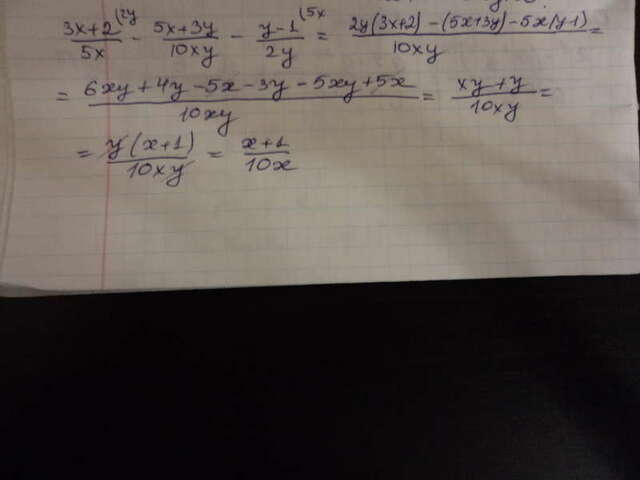 (3x+2)/(5x) (2y - (5x+3y)/(10xy) - (y-1)/(2y) (5x = (2y(3x+2)-(5x+3y)-5x(y-1))/(10xy) =
= (6xy+4y-5x-3y-5xy+5x)/(10xy) = (xy+y)/(10xy) =
= (y(x+1))/(10xy) = (x+1)/(10x)